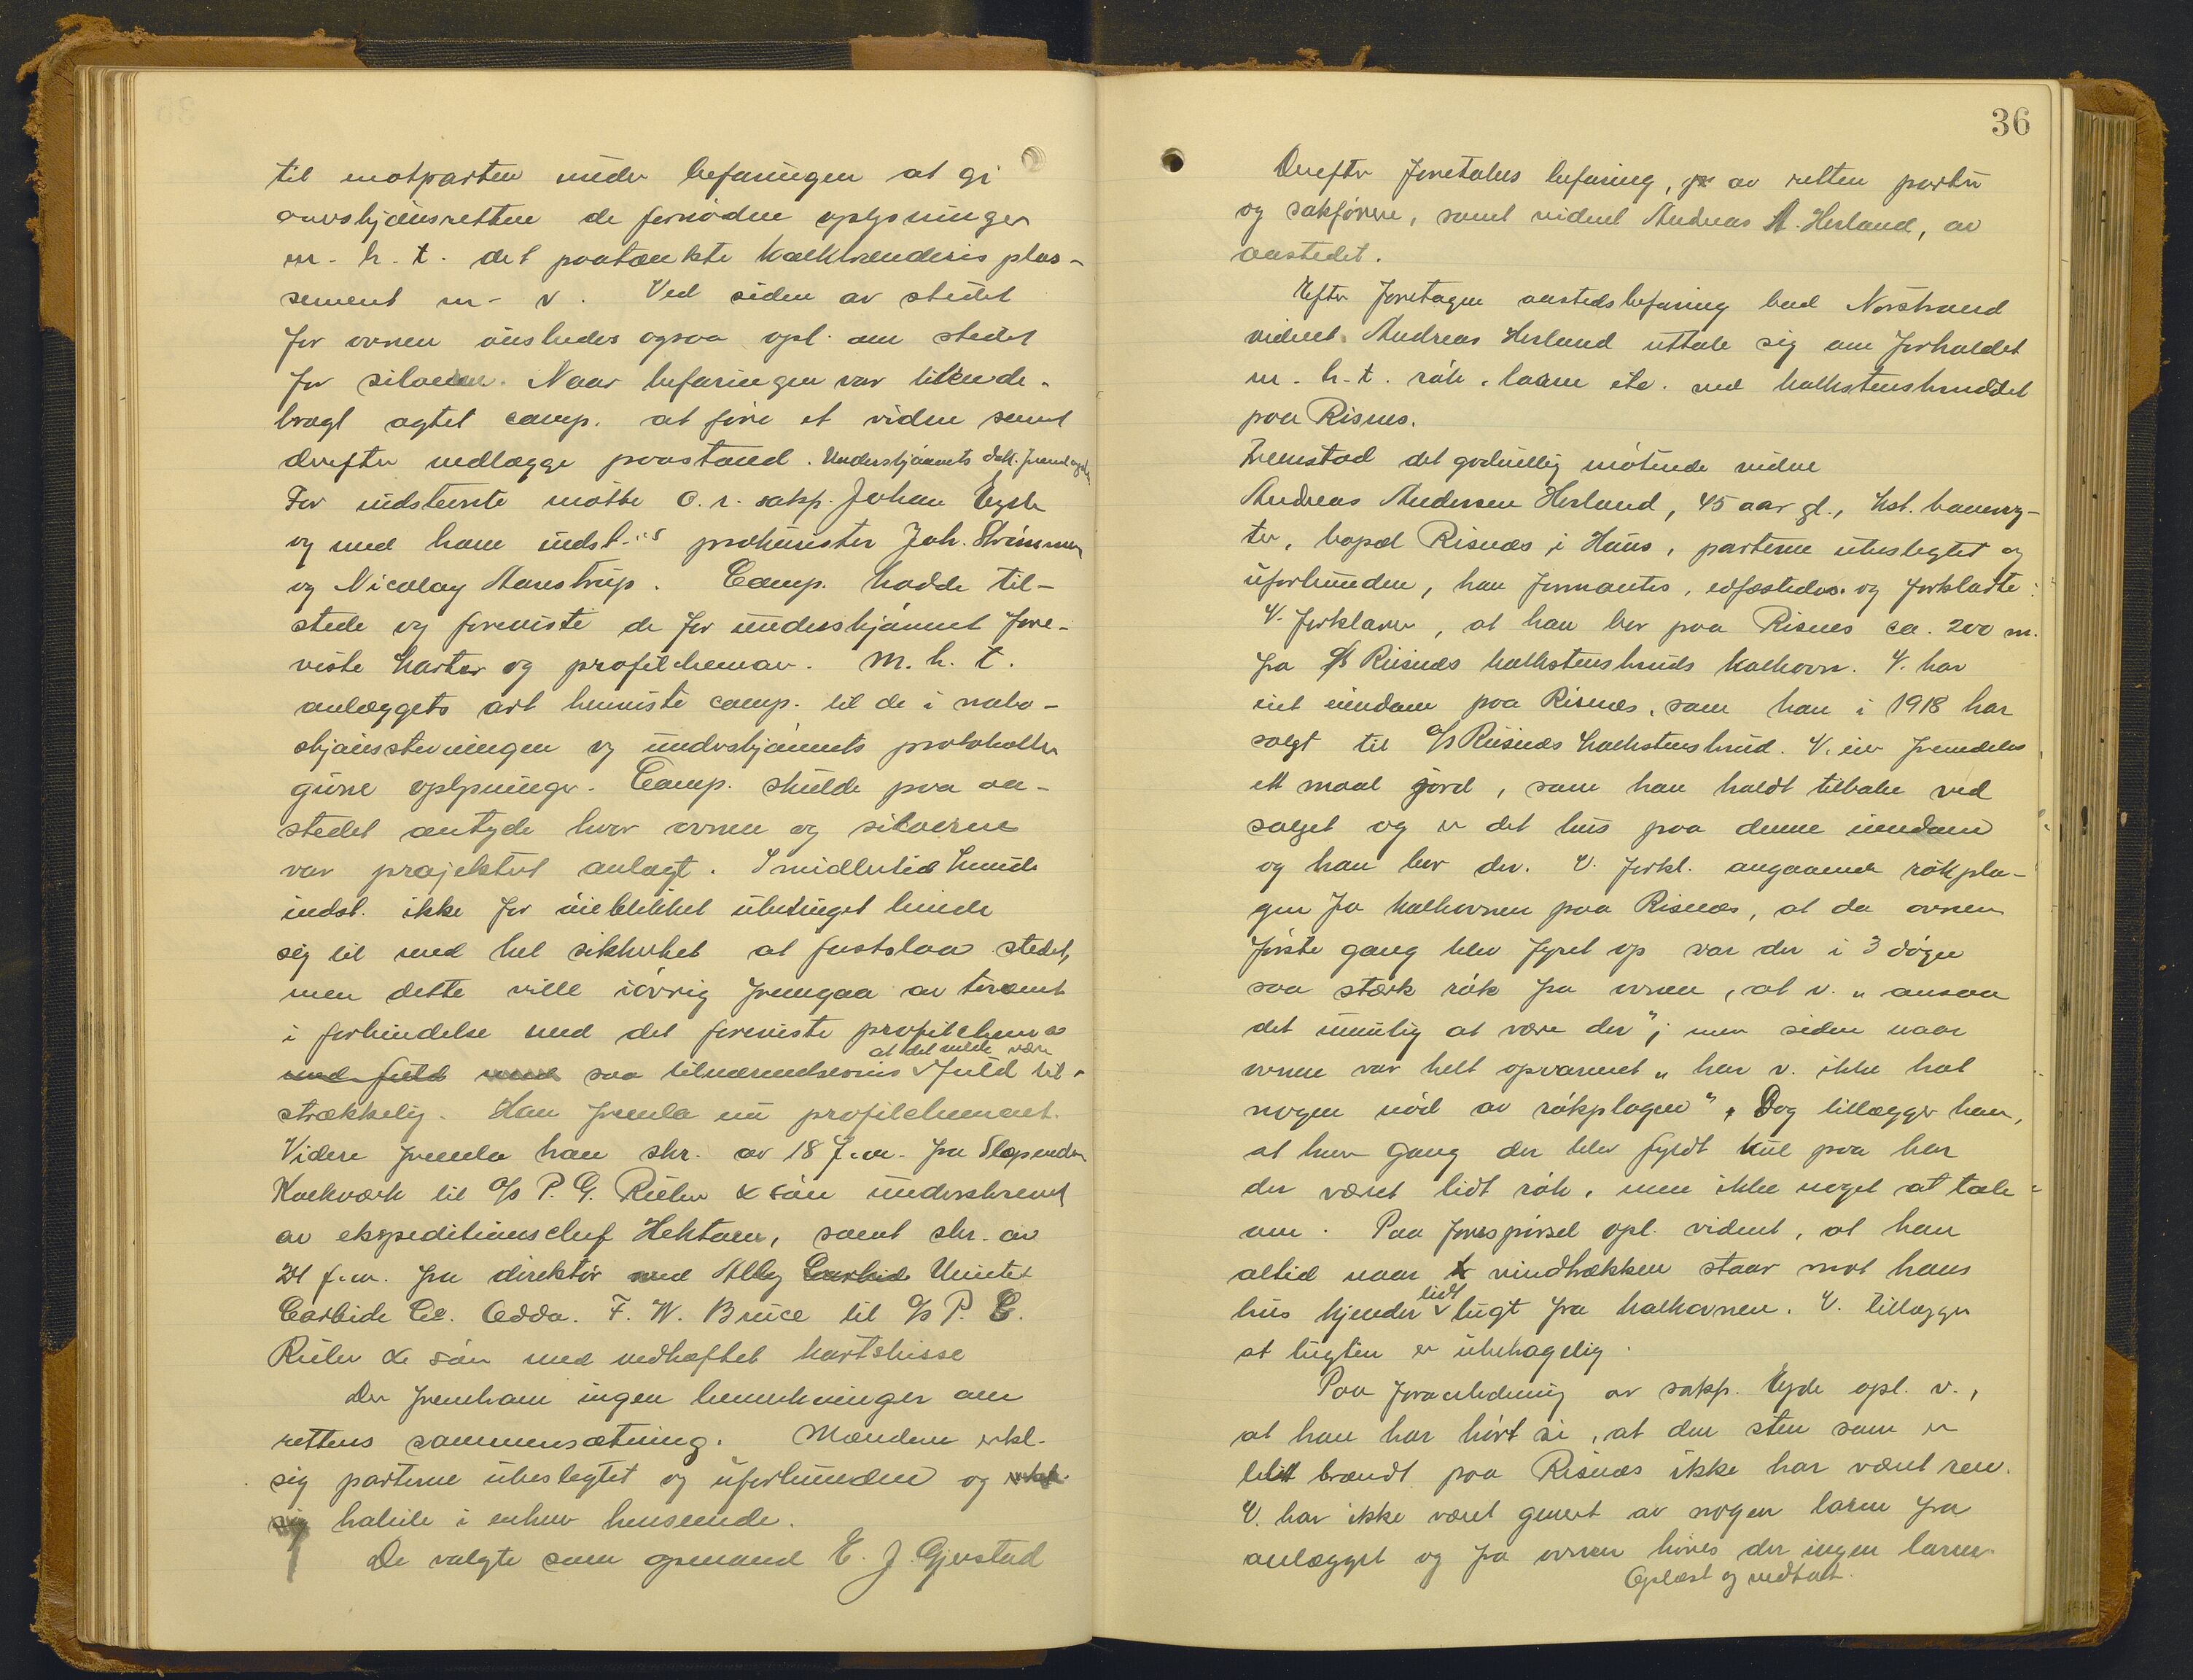 til motparten under befaringen at gi
overskjønsretten de fornødne oplysninger
m. h. t. det paatænkte kalkbrænderis plas-
sement m. v. Ved siden av stedet
for ovnen ønskedes ogsaa opl. om stedet
for siloerne. Naar befaringen var tilende-
bragt agtet comp. at føre et vidne samt
derefter nedlægge paastand. Underskjønnets dok. fremlagdes
For indstevnte møtte o. r. sakf. Johan Eyde
og med ham indst.'s prokurister Joh. Strømmen
og Nicolay Aanestrup. Comp. hadde til-
stede og foreviste de for underskjønnet fore-
viste karter og profilchemaer. M. h. t.
anlæggets art henviste comp. til de i nabo-
skjønsstevningen og underskjønnets protokoller
givne oplysninger. Comp. skulde paa aa-
stedet antyde hvor ovnen og siloerne
var projektert anlagt. Imidlertid kunde
indst. ikke for øieblikket ubetinget binde
sig til med hel sikkerhet at fastslaa stedet,
men dette ville iøvrig fremgaa av terrænet
i forbindelse med det foreviste profilchema
med fuld med saa tilnærmelsesvis at det vilde være fuld til-
strækkelig. Han fremla nu profilchemaet.
Videre fremla han skr. av 18 f.m. fra Slependen
Kalkværk til A/S P. G. Rieber & søn underskrevet
av ekspeditionschef Hektoen, samt skr. av
21 f.m. fra direktør med Alby Carbide United
Carbide Co. Odda. F. W. Bruce til A/S P. G.
Rieber & søn med vedhæftet kartskisse
Der fremkom ingen bemerkninger om
rettens sammensætning. Mændene erkl.
sig parterne ubeslegtet og uforbundne og erkl.
sig habile i enhver henseende.
De valgte som opmand E. J. Gjerstad
36
Derefter foretokes befaring, av retten parter
og sakførere, samt vidnet Andreas A. Herland, av
aastedet.
Efter foretagen aastedsbefaring bad Norstrand
vidnet Andreas Herland uttale sig om forholdet
m. h. t. røk, larm etc. ved kalkstensbruddet
paa Risnes.
Fremstod det godvillig møtende vidne
Andreas Andersen Herland, 45 aar gl., bst. banevog-
ter, bopæl Risnæs i Haus, parterne ubeslegtet og
uforbunden, han formantes, edfæstedes og forklarte:
V. forklarer, at han bor paa Risnes ca. 200 m.
fra A/S Risnæs kalkstensbruds kalkovn. V. har
eiet eiendom paa Risnæs, som han i 1918 har
solgt til A/S Risnæs kalkstensbrud. V. eier fremdeles
ett maal jord, som han holdt tilbake ved
salget og er det hus paa denne eiendom
og han bor der. V. forkl. angaaende røkpla-
gen fra kalkovnen paa Risnæs, at da ovnen
første gang blev fyret op var der i 3 døgn
saa stærk røk fra ovnen, at v. „ansaa
det umulig at være der“; men siden naar
ovnen var helt opvarmet „har v. ikke hat
nogen nød av røkplagen“. Dog tillægger han,
at hver gang der blev fyldt kul paa har
der været lidt røk, men ikke noget at tale
om. Paa forespørsel opl. vidnet, at han
altid naar vindtrækken staar mot hans
hus kjender lidt lugt fra kalkovnen. V. tillægger
at lugten er ubehagelig.
Paa foranledning av sakf. Eyde opl. v.,
at han har hørt si, at den sten som er
blitt brændt paa Risnæs ikke har været ren.
V. har ikke været genert av nogen larm fra
anlægget og fra ovnen høres der ingen larm.
Oplæst og vedtat.